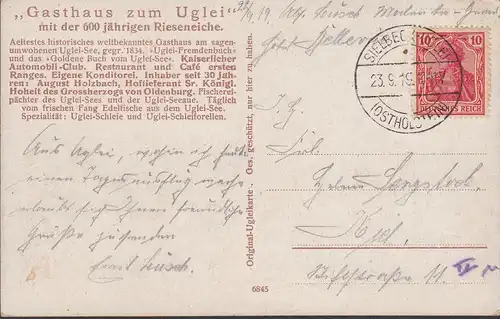 „Gasthaus zum Uglei"
mit der 600 jährigen Rieseneiche.
Aeltestes historisches weltbekanntes Gasthaus am sagen-
umwobenen Uglei-See, gegr. 1834. »Uglei-Fremdenbuch«
und das »Goldene Buch vom Uglei-See«. Kaiserlicher
Automobil-Club. Restaurant und Café ersten
Ranges. Eigene Konditorei. Inhaber seit 30 Jah-
ren: August Holzbach, Hoflieferant Sr. Königl.
Hoheit des Grossherzogs von Oldenburg. Fischerei-
pächter des Uglei-Sees und der Uglei-Seeaue. Täglich
vom frischen Fang Edelfische aus dem Uglei-See.
Spezialität: Uglei-Schleie und Uglei-Schleiforellen.
Aus Uglei, wohin ich heute
einen Tagesausflug mache,
erlaubt sich Ihnen freundliche
Grüße zu senden
Ernst Küsch.
Original-Ugleikarte. Ges. geschützt, nur hier zu haben.
6845
SIELBEC
23.9.19
(OSTHOLSTEIN)
10 10
DEUTSCHES REICH
Frl.
Helene
Kiel
11 IV